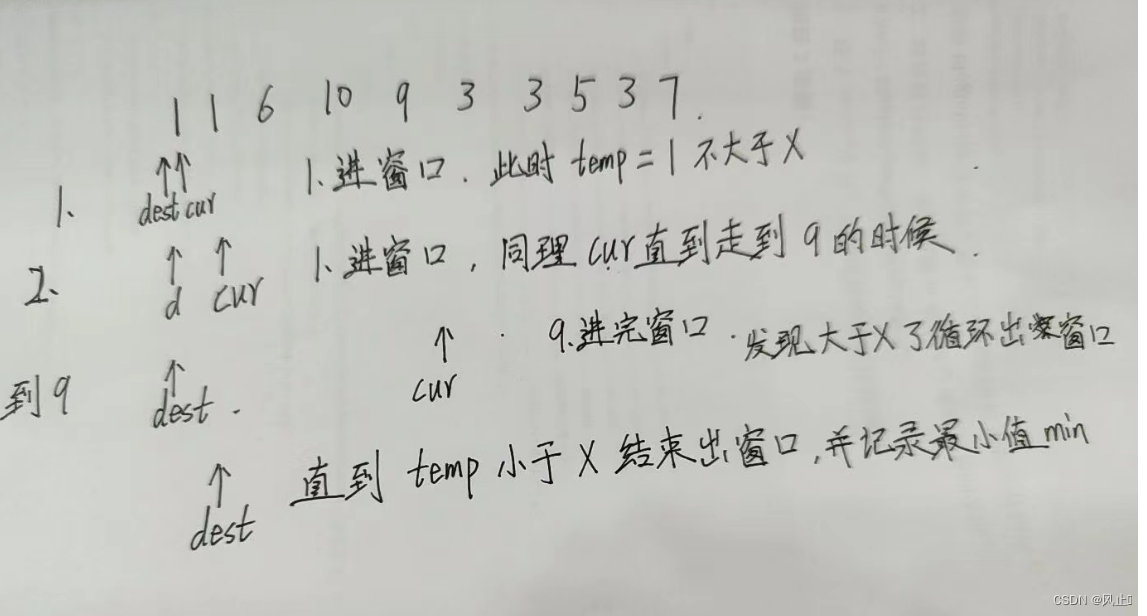 1 1 6 10 9 3 3 5 3 7.
1、 dest cur 1、进窗口. 此时 temp = 1 不大于X
2、 d cur 1、进窗口，同理 cur直到走到 9 的时候.
到9 dest. cur 9.进完窗口.发现大于X了循环出窗口
dest 直到 temp 小于 X 结束出窗口,并记录最小值 min
CSDN @风止